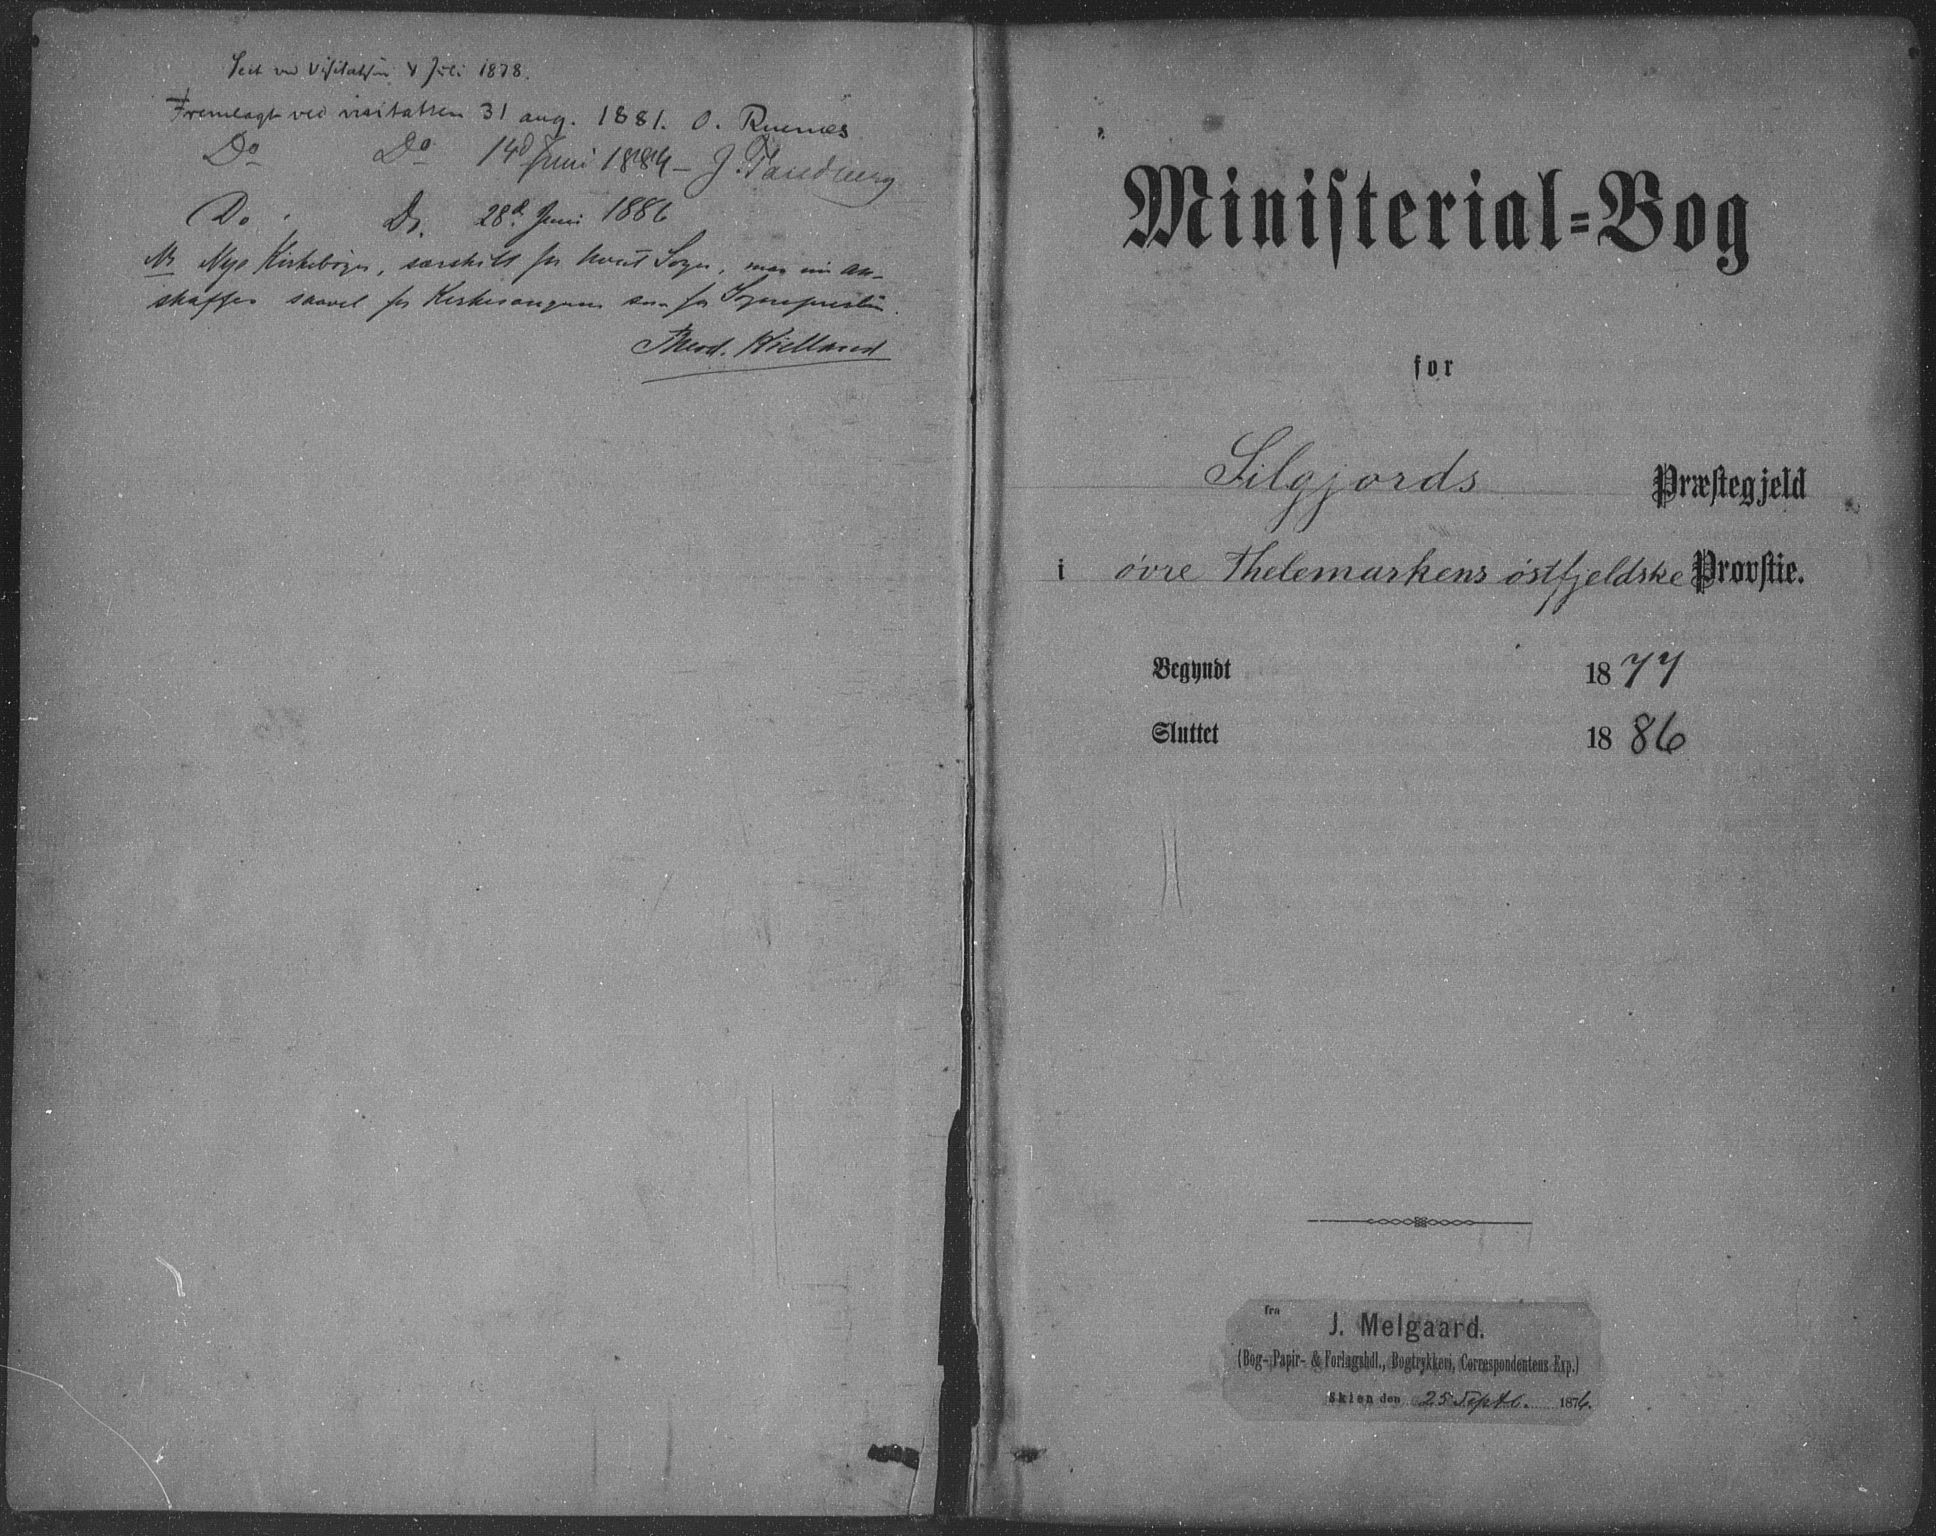 Seet ved Visitatsen 4 Juli 1878.
Fremlagt ved visitatsen 31 aug. 1881. O. Ruenæs
Do Do 14d Juni 1884 – J. Tandberg
Do. Do. 28d Juni 1886
Nye Kirkebøger, særskilt for hvert Sogn, maa nu an-
skaffes saavel for Kirkesangeren som for Sognepresten.
Theod. Kielland
Ministerial=Bog
for
Silgjords Præstegjeld
i øvre Thelemarkens østfjeldske Provstie.
Begyndt 1877
Sluttet 1886
fra
J. Melgaard.
(Bog- Papir- & Forlagshdl., Bogtrykkeri, Correspondentens Exp.)
Skien den 25 Septb. 1876.